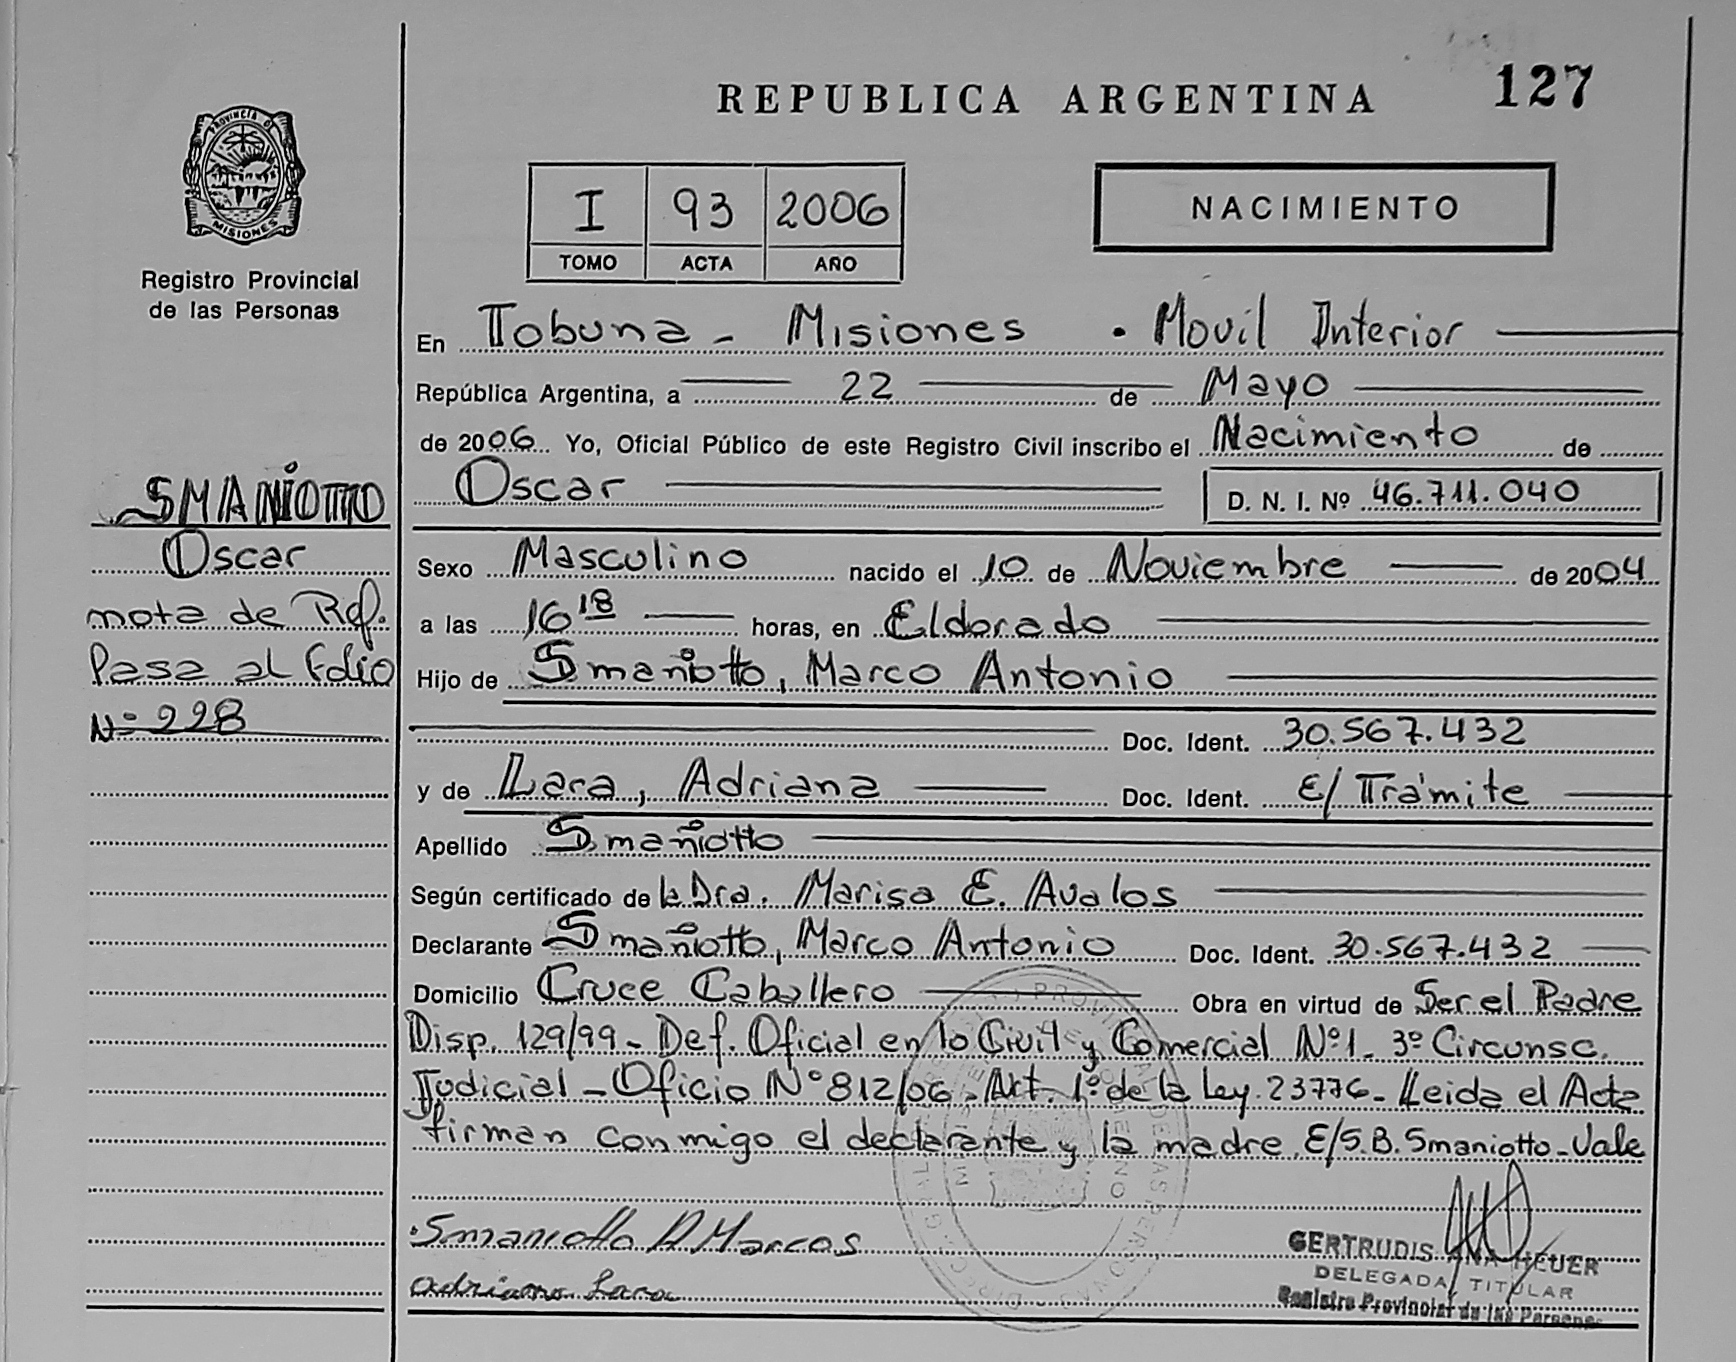 REPUBLICA ARGENTINA
127
PROVINCIA DE
MISIONES
Registro Provincial
de las Personas
I 93 2006
TOMO ACTA AÑO
NACIMIENTO
En Tobuna - Misiones . Movil Interior
República Argentina, a 22 de Mayo
de 2006 Yo, Oficial Público de este Registro Civil inscribo el Nacimiento de
Oscar D. N. I. Nº 46.711.040
SMANIOTTO
Oscar
nota de Ref.
Pasa al Folio
Nº 228
Sexo Masculino nacido el 10 de Noviembre de 2004
a las 16 18 horas, en Eldorado
Hijo de Smaniotto, Marco Antonio
Doc. Ident. 30.567.432
y de Lara, Adriana Doc. Ident. E/ Trámite
Apellido Smaniotto
Según certificado de la Dra. Marisa E. Avalos
Declarante Smaniotto, Marco Antonio Doc. Ident. 30.567.432
Domicilio Cruce Caballero Obra en virtud de Ser el Padre
Disp. 129/99 - Def. Oficial en lo Civil y Comercial Nº1 - 3º Circunsc.
Judicial - Oficio Nº 812/06 - Art. 1º de la Ley 23776 - Leida el Acta
firman conmigo el declarante y la madre E/S.B. Smaniotto - Vale
Smaniotto A Marcos
Adriana Lara
GERTRUDIS ANA HEUER
DELEGADA TITULAR
Registro Provincial de las Personas